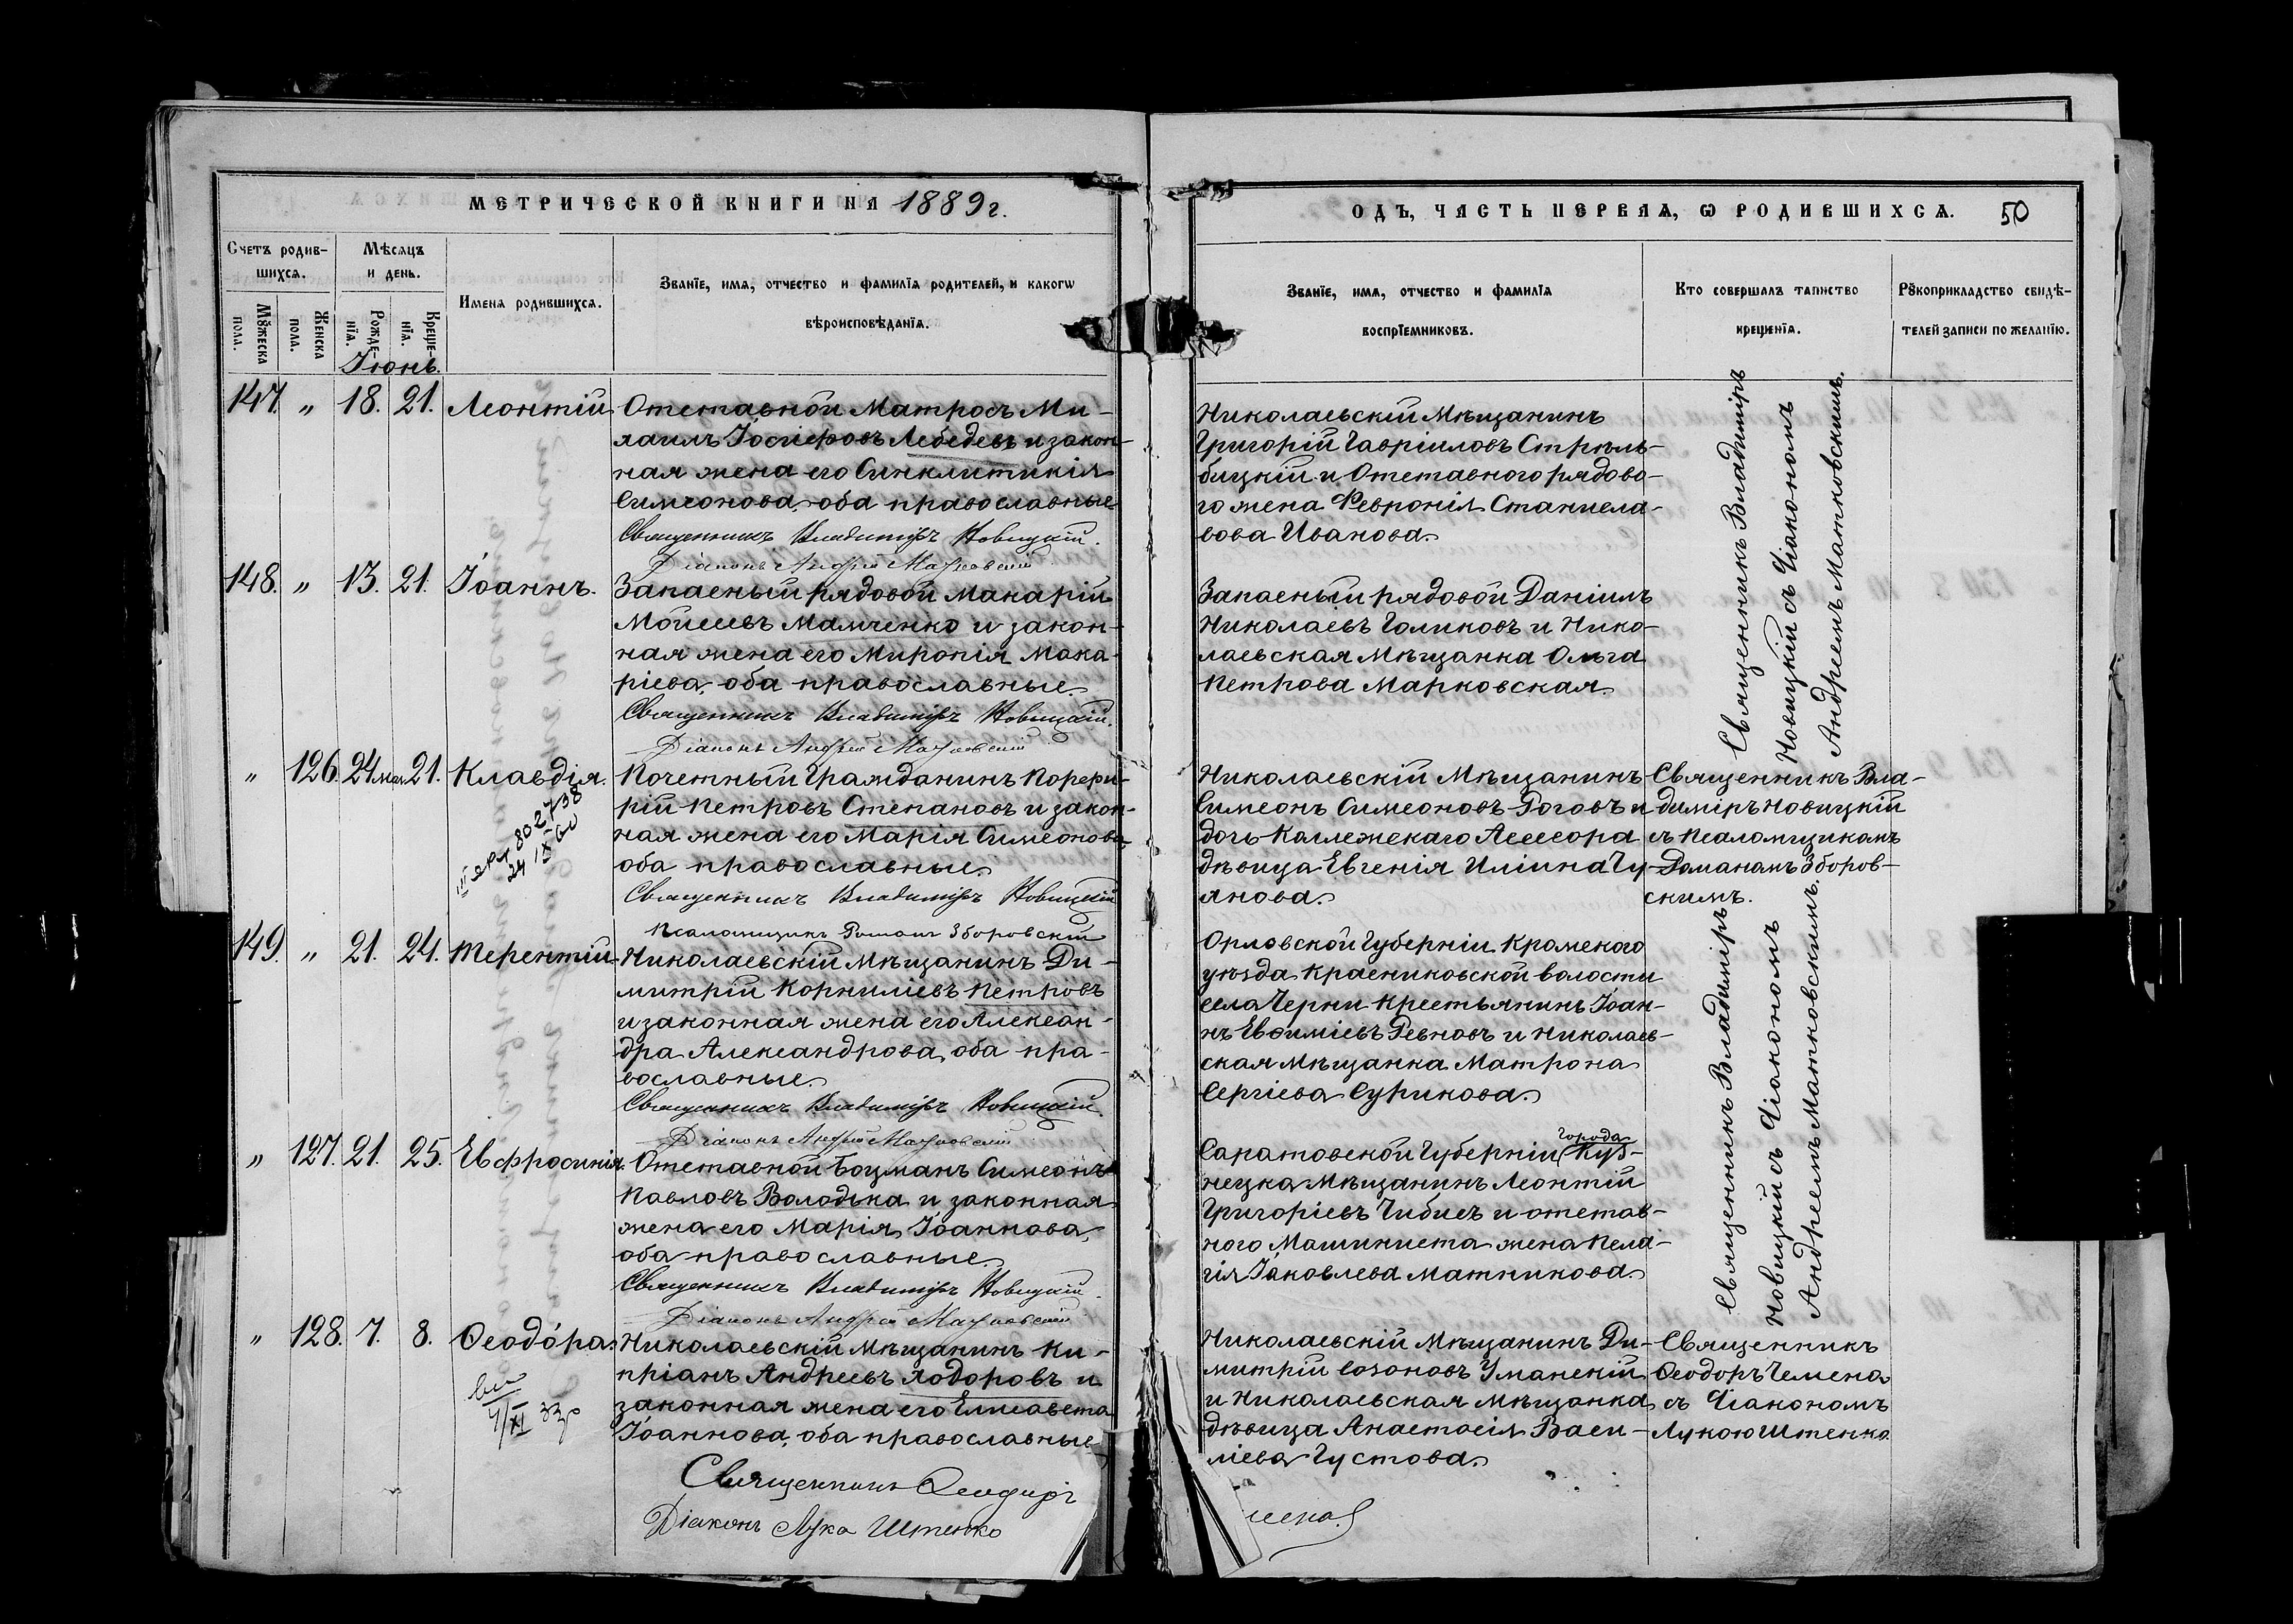 МЕТРИЧЕСКОЙ КНИГИ НА 1889 г.
Счетъ родив-
шихся.
Мѣсяцъ
и день.
Имена родившихся.
Званїе, имя, отчество и фамилїя родителей, и какогѡ
вѣроисповѣданїя.
Мꙋжеска
пола.
Женска
пола.
Рожде-
нїя.
Креще-
нїя.
Іюнь.
147. „ 18. 21. Леонтій
Отставной Матросъ Ми-
хаилъ Іосифовъ Лебедевъ и закон-
ная жена его Синклитикія
Симеонова, оба православные
Священникъ Владиміръ Новицкій.
Діаконъ Андрей Матковскій
148. „ 13. 21. Іоаннъ.
Запасный рядовой Макарій
Мойсеевъ Мамченко и закон-
ная жена его Миронія Мака-
ріева, оба православные.
Священникъ Владиміръ Новицкій.
Діаконъ Андрей Матковскій
„ 126. 24 мая 21. Клавдія.
802738
24 IX
Почетный Гражданинъ Порфи-
рій Петровъ Степановъ и закон-
ная жена его Марія Симеонова
оба православные.
Священникъ Владиміръ Новицкій
Псаломщикъ Романъ Зборовскій
149. „ 21. 24. Терентій
Николаевскій Мѣщанинъ Ди-
митрій Корниліевъ Петровъ
и законная жена его Алексан-
дра Александрова, оба пра-
вославные.
Священникъ Владиміръ Новицкій.
Діаконъ Андрей Матковскій
„ 127. 21. 25. Евфросинія.
Отставной Боцманъ Симеонъ
Павловъ Володька и законная
жена его Марія Іоаннова,
оба православные.
Священникъ Владиміръ Новицкій.
Діаконъ Андрей Матковскій
„ 128. 7. 8. Ѳеодо́ра
Николаевскій Мѣщанинъ Ки-
пріанъ Андреевъ Ходоровъ и
законная жена его Елисавета
Іоаннова, оба православные
Священникъ Ѳеодоръ
Діаконъ Лука Штенко
ОДЪ, ЧАСТЬ ПЕРВАЯ, Ѡ РОДИВШИХСЯ. 50
Званїе, имя, отчество и фамилїя
воспрїемниковъ.
Кто совершалъ таинство
крещенїя.
Рꙋкоприкладство свидѣ-
телей записи по желанїю.
Николаевскій Мѣщанинъ
Григорій Гавріиловъ Стрѣль-
бицкій и Отставного рядово-
го жена Февронія Станисла-
вова Иванова.
Запасный рядовой Даніилъ
Николаевъ Голиковъ и Нико-
лаевская Мѣщанка Ольга
Петрова Марковская
Священникъ Владиміръ
Новицкій съ Діакономъ
Андреемъ Матковскимъ.
Николаевскій Мѣщанинъ
Симеонъ Симеоновъ Роговъ и
дочь Коллежскаго Ассесора
дѣвица Евгенія Иліина Чу-
янова.
Священникъ Вла-
диміръ Новицкій
съ Псаломщикомъ
Романомъ Зборов-
скимъ.
Орловской Губерніи Кромского
уѣзда Красниковской волости
села Черни Крестьянинъ Іоан-
нъ Евфиміевъ Ревновъ и Николаев-
ская Мѣщанка Матрона
Сергіева Сурикова.
Саратовской Губерніи города Куз-
нецка Мѣщанинъ Леонтій
Григоріевъ Чибисъ и отстав-
ного Машиниста жена Пела-
гія Іаковлева Матникова.
Священникъ Владиміръ
Новицкій съ Діакономъ
Андреемъ Матковскимъ.
Николаевскій Мѣщанинъ Ди-
митрій Созоновъ Уманскій
и Николаевская Мѣщанка
дѣвица Анастасія Васи-
ліева Густова.
Священникъ
Ѳеодоръ Чемена
съ Діакономъ
Лукою Штенко.